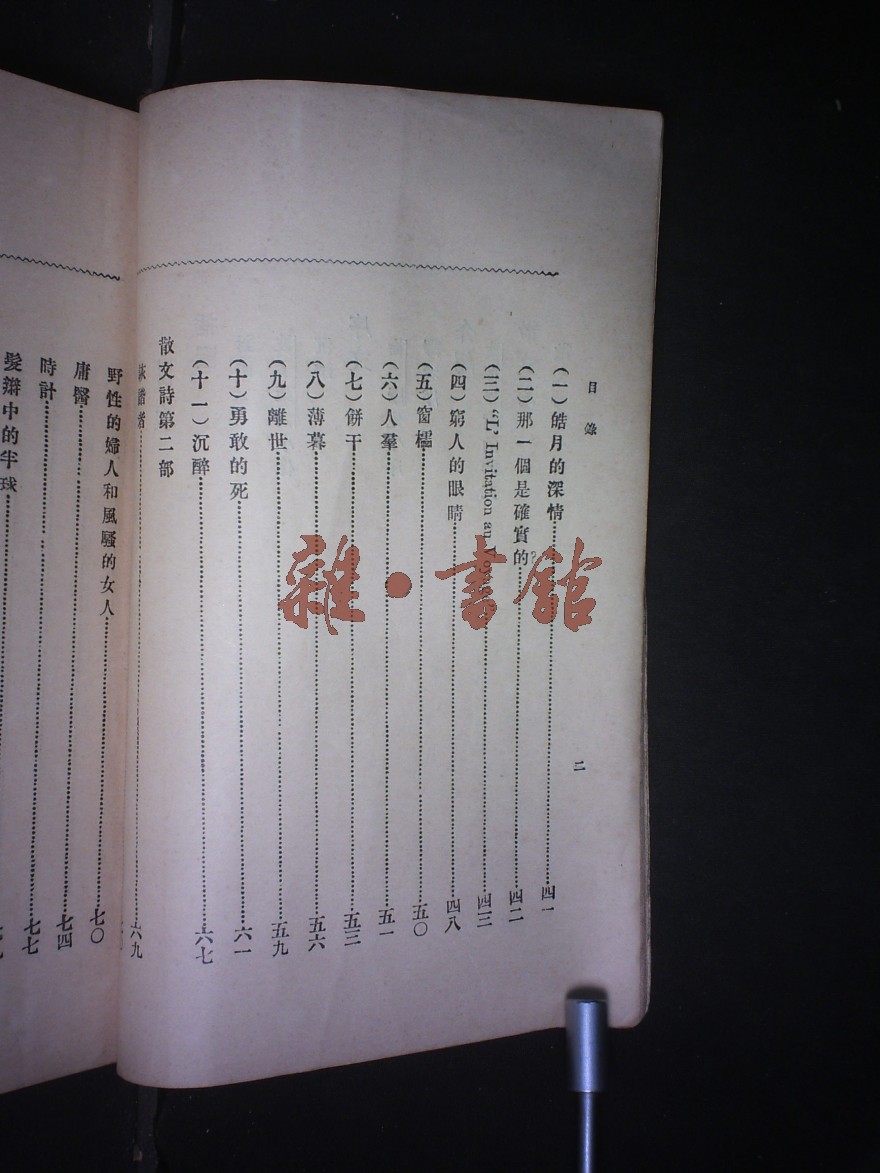 目錄
二
(一)皓月的深情……四一
(二)那一個是確實的?……四二
(三)"L' Invitation au……四三
(四)窮人的眼睛……四八
(五)窗櫺……五〇
(六)人羣……五一
(七)餅干……五三
(八)薄暮……五六
(九)離世……五九
(十)勇敢的死……六一
(十一)沉醉……六七
散文詩第二部
詼諧者……六九
野性的婦人和風騷的女人……七〇
庸醫……七四
時計……七七
髮辮中的半球
雜·書館